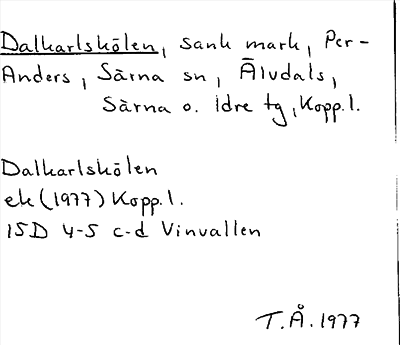 Dalkarlskölen, sank mark, Per-
Anders, Särna sn, Älvdals,
Särna o. Idre tg, Kopp.l.
Dalkarlskölen
ek (1977) Kopp.l.
15D 4-5 c-d Vinvallen
T.Å. 1977